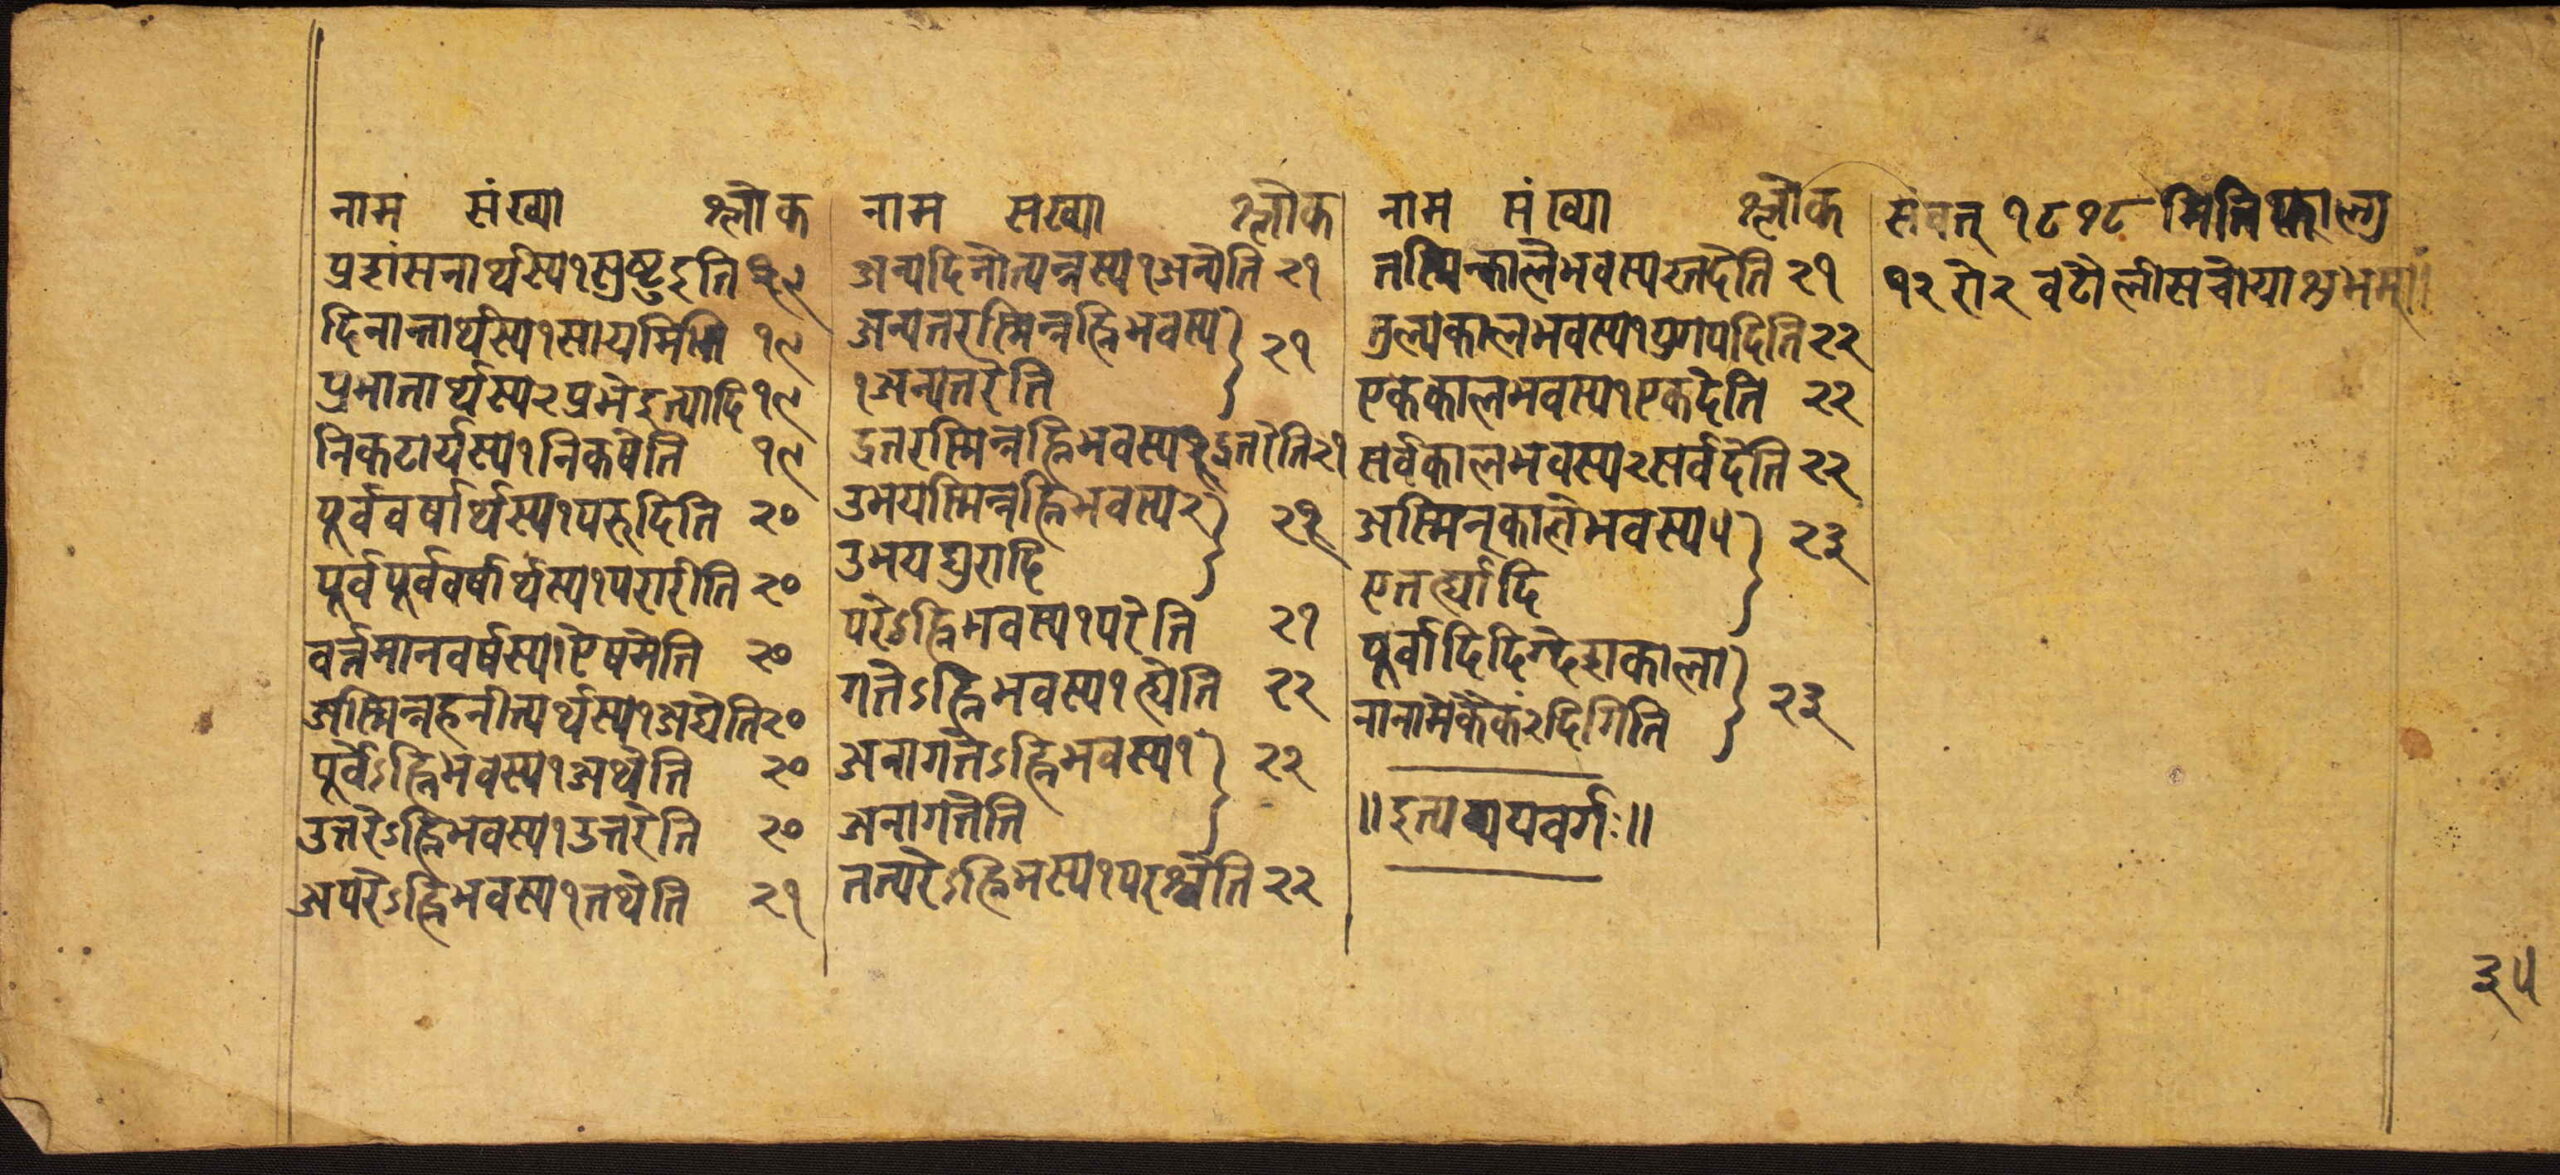 नाम संख्या श्लोक
प्रशंसनार्थस्य१सुष्टुइति १९
दिनान्तार्थस्य१सायमिति १९
प्रभातार्थस्य२प्रगेइत्यादि१९
निकटार्थस्य१निकषेति १९
पूर्ववर्षार्थस्य१परुदिति २०
पूर्वपूर्ववर्षार्थस्य१परारीति २०
वर्त्तमानवर्षस्य१ऐषमेति २०
अस्मिन्नहनीत्यर्थस्य१अद्येति२०
पूर्वेऽह्निभवस्य१अथेति २०
उत्तरेऽह्निभवस्य१उत्तरेति २०
अपरेऽह्निभवस्य१तथेति २१
नाम सख्या श्लोक
अन्यदिनोत्पन्नस्य१अन्येति २१
अन्यतरस्मिन्नह्निभवस्य
१अन्यतरेति २१
इतरस्मिन्नह्निभवस्य१इतरेति२१
उभयस्मिन्नह्निभवस्य२
उभयद्युरादि २१
परेऽह्निभवस्य१परेति २१
गतेऽह्निभवस्य१ह्येति २२
अनागतेऽह्निभवस्य१
अनागतेति २२
तत्परेऽह्निभस्य१परश्वेति २२
नाम संख्या श्लोक
तस्मिन्कालेभवस्य२तदेति २१
तुल्यकालभवस्य१युगपदिति २२
एककालभवस्य१एकदेति २२
सर्वकालभवस्य२सर्वदेति २२
अस्मिन्कालेभवस्य५
एतर्ह्यादि २३
पूर्वादिदिग्देशकाला
नानामेकैकं२दिगिति २३
॥इत्यव्ययवर्गः॥
संवत् १८१८ मिति फाल्गु
१२ रो२ वटोलीस
३५